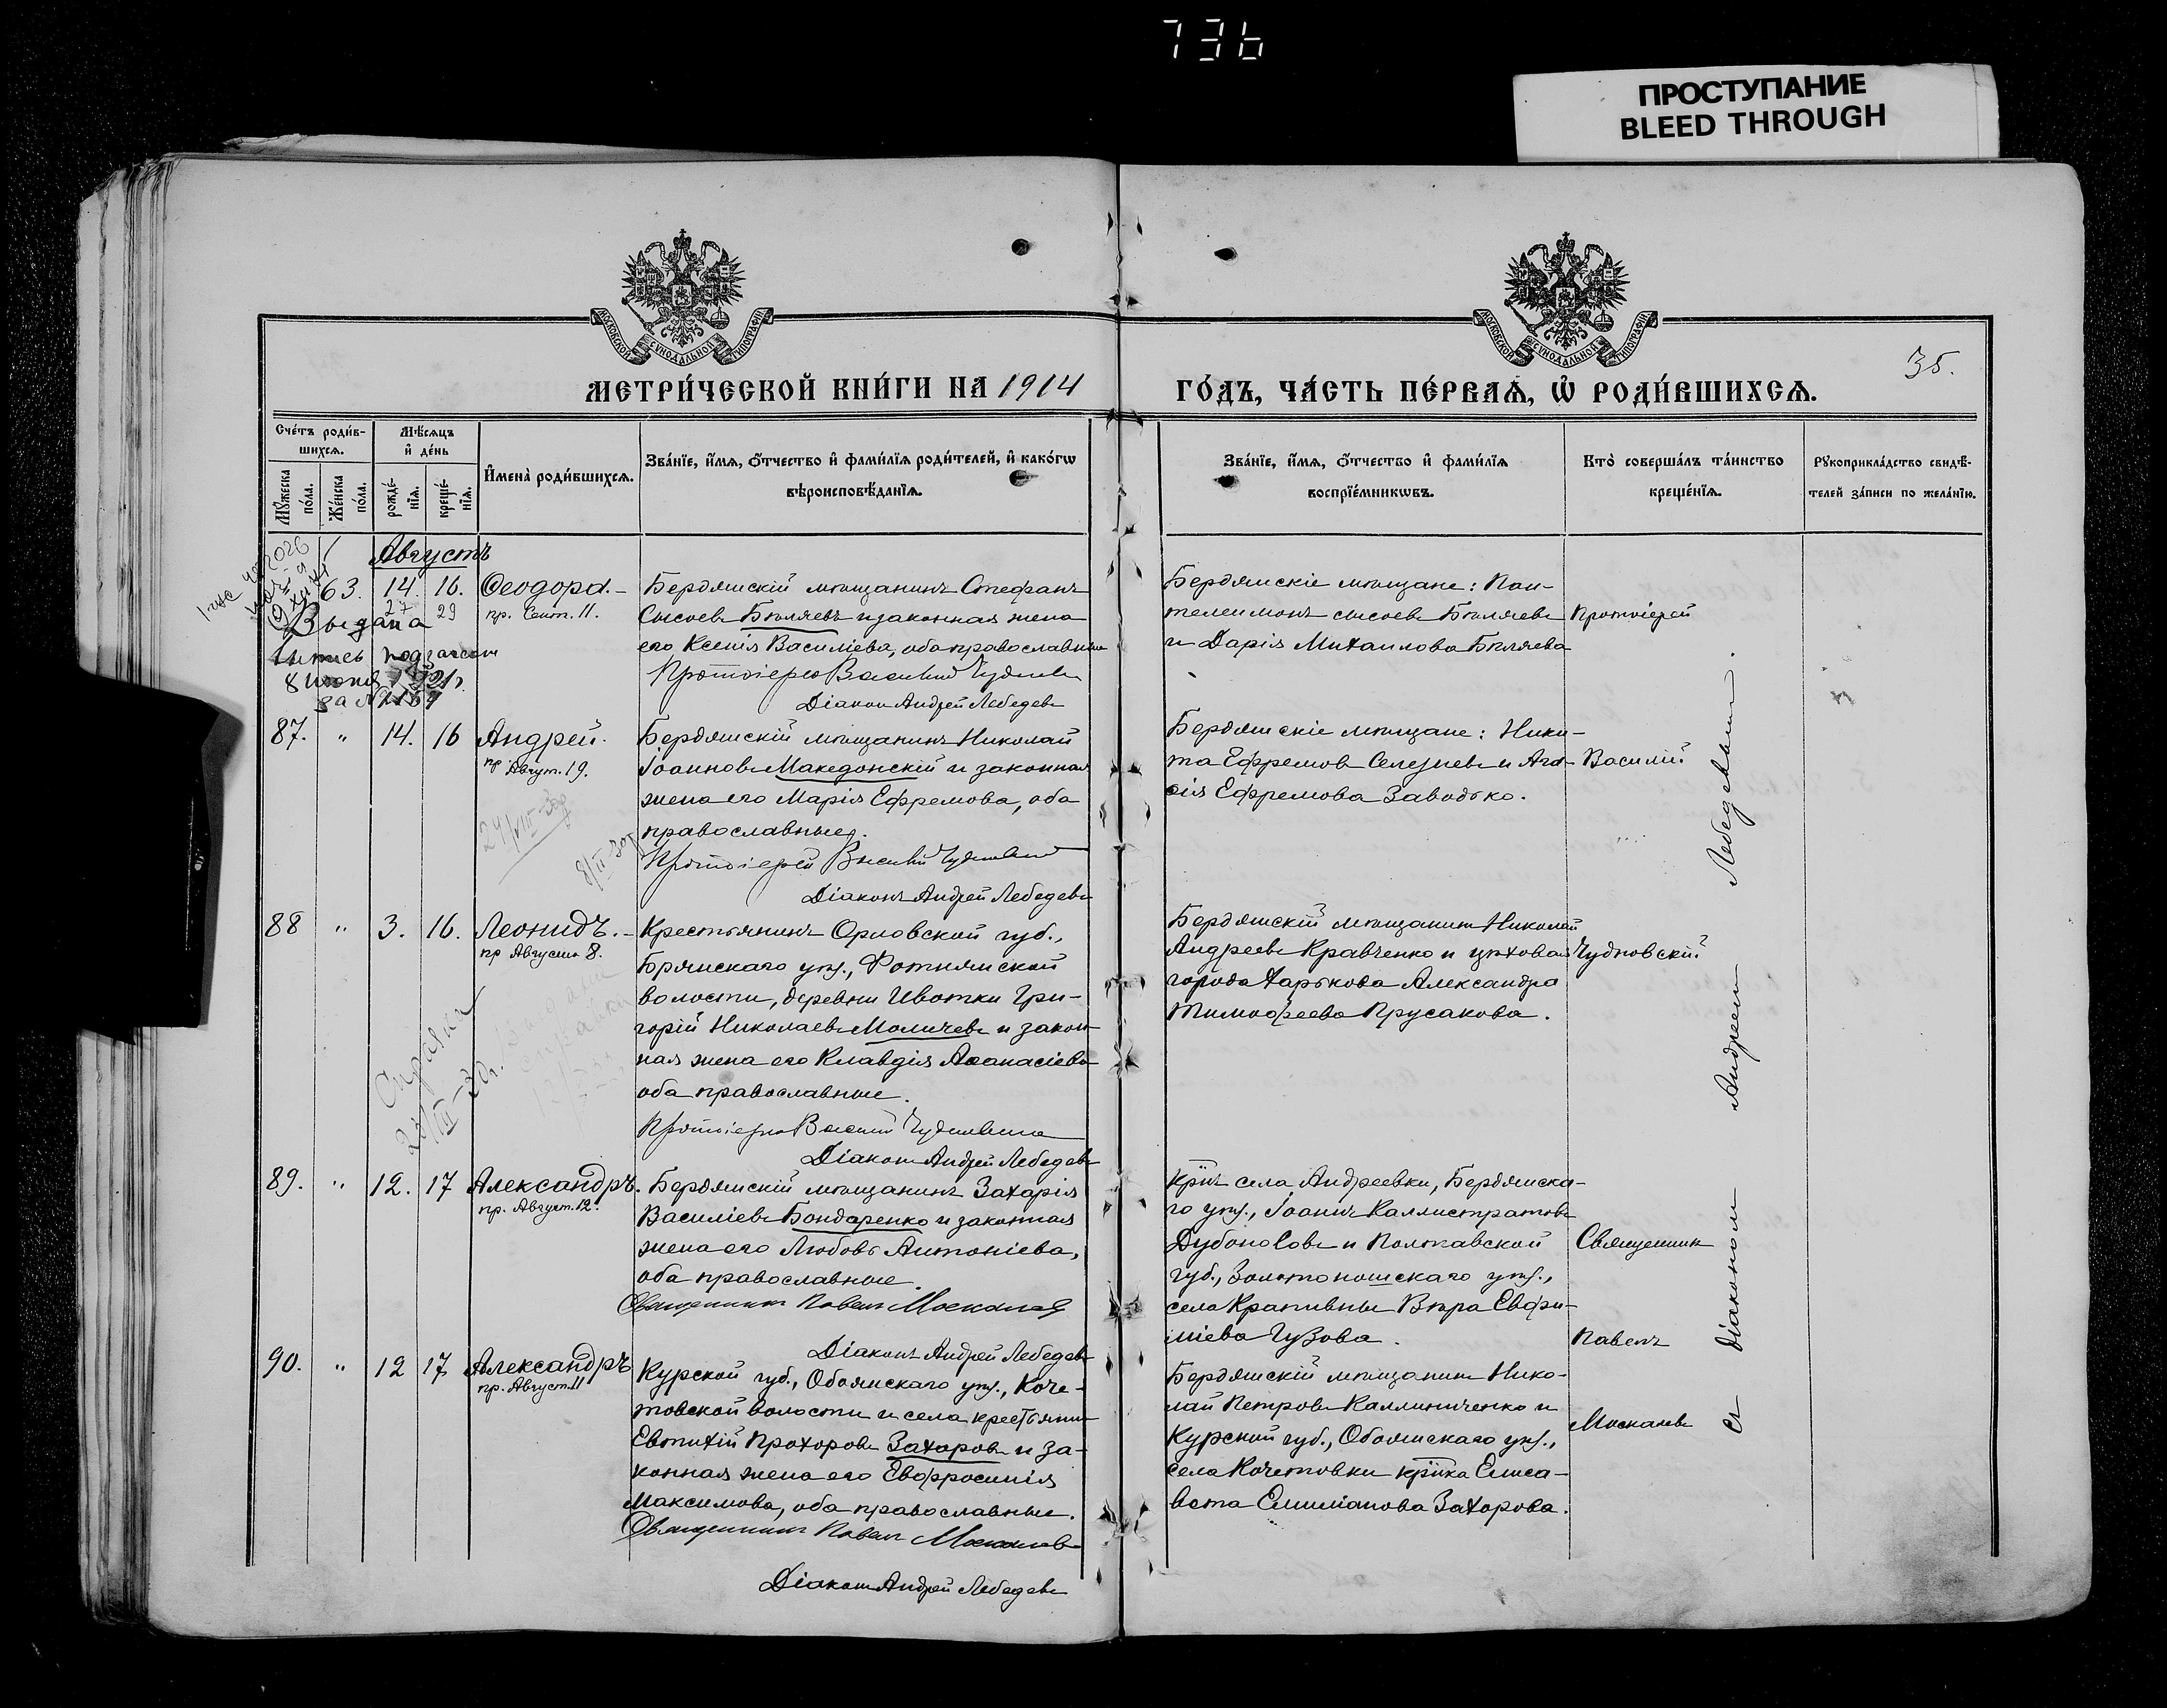 736
ПРОСТУПАНИЕ
BLEED THROUGH
МОСКОВСКОЙ СѴНОДАЛЬНОЙ ТИПОГРАФІИ
МОСКОВСКОЙ СѴНОДАЛЬНОЙ ТИПОГРАФІИ
35.
МЕТРИ́ЧЕСКОЙ КНИ́ГИ НА 1914
ГО́ДЪ, ЧА́СТЬ ПЕ́РВАѦ, Ѡ҆ РОДИ́ВШИХСѦ.
Сче́тъ роди́в-
шихсѧ.
Мꙋжеска по́ла.
Же́нска по́ла.
Мѣ́сѧцъ
и҆ де́нь
рожде́-
нїѧ.
креще́-
нїѧ.
И҆мена̀ роди́вшихсѧ.
Зва́нїе, и҆́мѧ, ѻ҆́тчество и҆ фами́лїѧ роди́телей, и҆ како́гѡ
вѣроисповѣ́данїѧ.
Зва́нїе, и҆́мѧ, ѻ҆́тчество и҆ фами́лїѧ
воспрїе́мникѡвъ.
Кто̀ соверша́лъ та́инство
креще́нїѧ.
Рꙋкоприкла́дство свидѣ́-
телей за́писи по жела́нїю.
Августъ
63. 14. 16. Ѳеодора.-
27 29 пр. Сент. 11.
Выдана
8 июня
за №
Бердянскій мѣщанинъ Стефанъ
Сысоевъ Бѣляевъ и законная жена
его Ксенія Василіева, оба православные
Протоіерей Василій Чудновскій
Діаконъ Андрей Лебедевъ
Бердянскіе мѣщане: Пан-
телеимонъ Сысоевъ Бѣляевъ
и Дарія Михаилова Бѣляева
Протоіерей
87. " 14. 16 Андрей.
пр Август. 19.
24/VIII-30г
8/II-30г
Бердянскій мѣщанинъ Николай
Іоанновъ Македонскій и законная
жена его Марія Ефремова, оба
православные.
Протоіерей Василій Чудновскій
Діаконъ Андрей Лебедевъ
Бердянскіе мѣщане: Ники-
та Ефремовъ Селезневъ и Ага-
ѳія Ефремова Заводько.
Василій
88 " 3. 16. Леонидъ.-
пр Августа 8.
Справка
Крестьянинъ Орловской губ.,
Брянскаго уѣз., Фотнянской
волости, деревни Ивотки Гри-
горій Николаевъ Моличевъ и закон-
ная жена его Клавдія Аѳанасіева
оба православные.
Протоіерей Василій Чудновскій
Діаконъ Андрей Лебедевъ
Бердянскій мѣщанинъ Николай
Андреевъ Кравченко и цѣховая
города Харькова Александра
Тимоѳеева Прусакова.
Чудновскій
89. " 12. 17 Александръ.
пр. Август. 12.
Бердянскій мѣщанинъ Захарія
Василіевъ Бондаренко и законная
жена его Любовь Антоніева,
оба православные.
Священникъ Павелъ Москалевъ
Діаконъ Андрей Лебедевъ
кр͠нъ села Андреевки, Бердянска-
го уѣз., Іоаннъ Каллистратовъ
Дубоносовъ и Полтавской
губ., Золотоношскаго уѣз.,
села Крапивны Вѣра Евфи-
міева Гузова.
Священникъ
Павелъ
90. " 12 17 Александръ
пр. Август. 11
Курской губ., Обоянскаго уѣз., Коче-
товской волости и села крестьянинъ
Евтихій Прохоровъ Захоровъ и за-
конная жена его Евфросинія
Максимова, оба православные.
Священникъ Павелъ Москалевъ
Діаконъ Андрей Лебедевъ
Бердянскій мѣщанинъ Нико-
лай Петровъ Каллиниченко и
Курской губ., Обоянскаго уѣз.,
села Кочетовки кр͠нка Елиса-
вета Емиліанова Захорова.
Москалевъ
съ діакономъ Андреемъ Лебедевымъ.